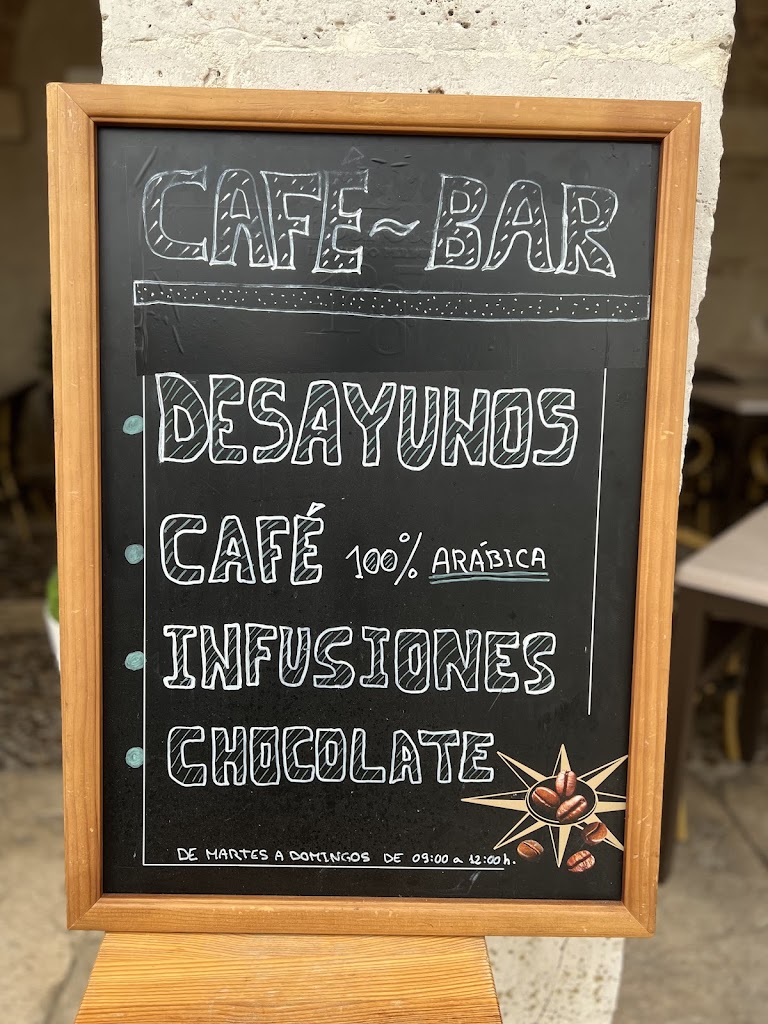 CAFÉ~BAR
DESAYUNOS
CAFÉ 100% ARÁBICA
INFUSIONES
CHOCOLATE
DE MARTES A DOMINGOS DE 09:00 a 12:00 h.